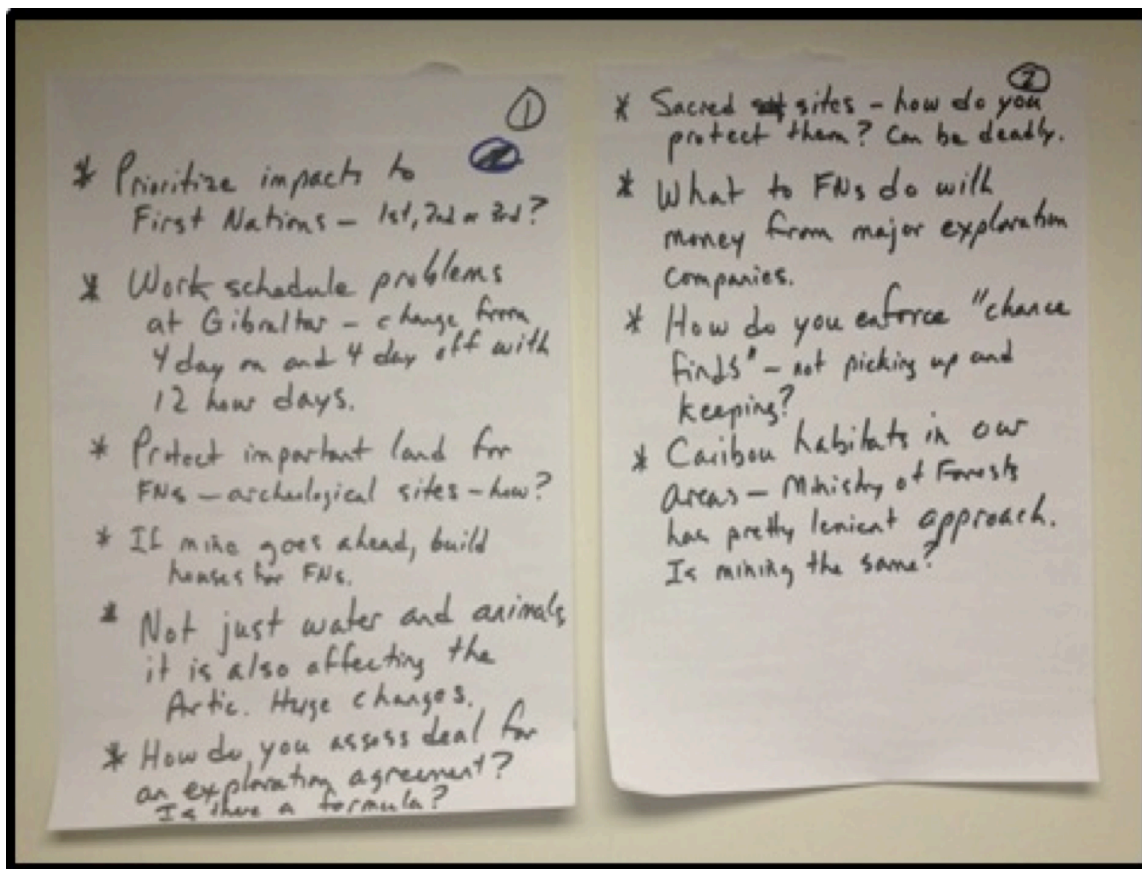 1
* Prioritize impacts to
First Nations - 1st, 2nd or 3rd?
* Work schedule problems
at Gibraltar - change from
4 day on and 4 day off with
12 hour days.
* Protect important land for
FNs - archeological sites - how?
* If mine goes ahead, build
houses for FNs.
* Not just water and animals
it is also affecting the
Artic. Huge changes.
* How do you assess deal for
an exploration agreement?
Is there a formula?
2
* Sacred sites - how do you
protect them? Can be deadly.
* What to FNs do with
money from major exploration
companies.
* How do you enforce "chance
finds" - not picking up and
keeping?
* Caribou habitats in our
areas - Ministry of Forests
has pretty lenient approach.
Is mining the same?